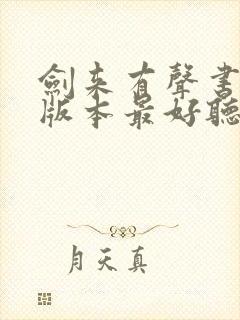 劍来有聲書
版本最好聽
月天真